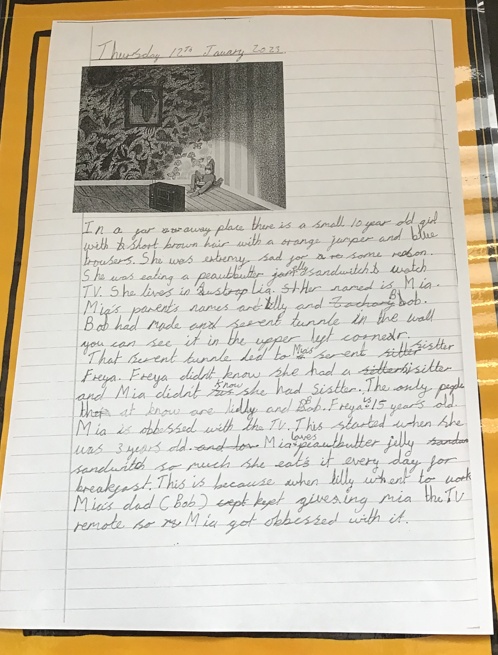 Thursday 12th Janary 2023
In a far away place there is a small 10 year old girl
with short brown hair with a orange jumper and blue
trousers. She was extremy sad for some reason.
She was eating a peautbutter jelly sandwitch & watch
TV. She lives in Austraplia. named is Mia.
Mia's parents names are lilly and Bob.
Bob had made and secrent tunnle in the wall
you can see it in the upper left cornedr.
That secrent tunnle led to Mia's secrent sister
Freya. Freya didnt know she had a sitter
and Mia didnt know she had sister. The only people
that know are lilly and Bob. Freya is 15 years old.
Mia is obbessed with the TV. This started when she
was 3 years old. Mia loves peautbutter jilly
sandwiths so much she eats it every day for
breakfast. This is because when lilly whent to work
Mia's dad (Bob) kept giveing mia the TV
remote so Mia got obbessed with it.